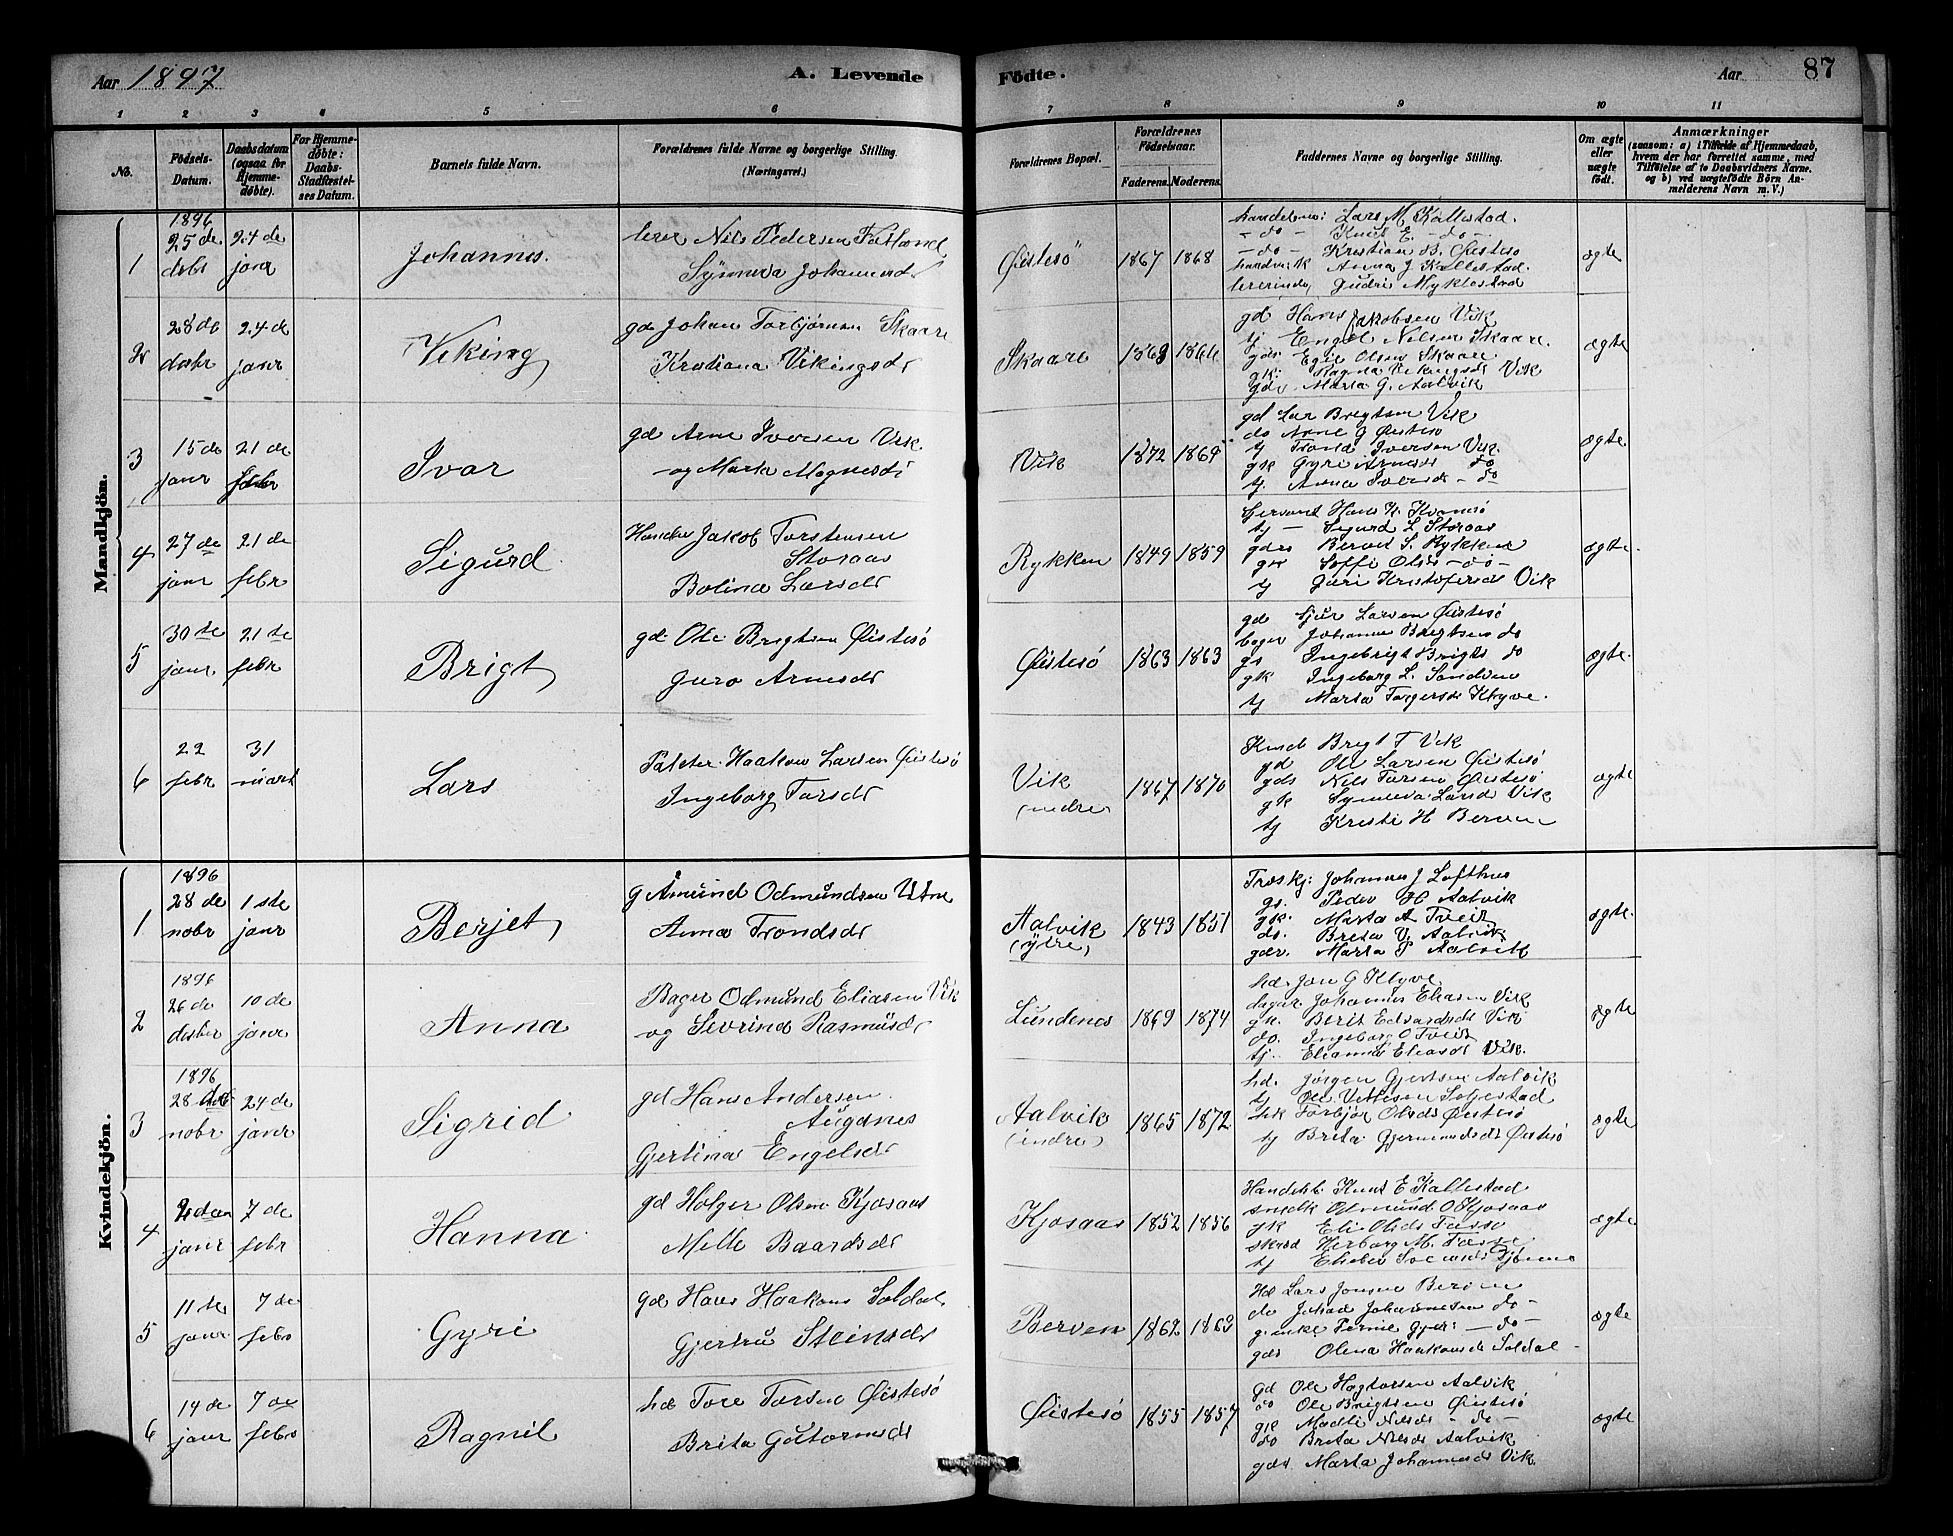 Aar 1897
A. Levende Födte.
Aar
87
1 2 3 4 5 6 7 8 9 10 11
No.
Födsels-Datum.
Daabsdatum (ogsaa for Hjemme-döbte).
For Hjemme-døbte: Daabs-Stadfæstel-ses Datum.
Barnets fulde Navn.
Forældrenes fulde Navne og borgerlige Stilling. (Næringsvei.)
Forældrenes Bopæl.
Forældrenes Födselsaar.
Faderens. Moderens.
Faddernes Navne og borgerlige Stilling.
Om ægte eller uægte født.
Anmærkninger
(saasom: a) i Tilfælde af Hjemmedaab, hvem der har forrettet samme, med Tilföielse af to Daabsvidners Navne, og b) ved uægtefödte Börn An-melderens Navn m. V.)
Mandkjön.
1
1896
25 de desbr
24 de janr
Johannes.
lærer Nils Pedersen Fatland
Synneva Johannesdr
Øistesö
1867 1868
handelsm: Lars M. Kallestad.
- do - Knut E. - do -
- do - Kristian B. Øistesø
handverk Anna J Kallestad.
lærerinde, Gudri Myklestad
ægte
2
28 de desbr
24 de janr
Viking
gd Johan Torbjørnsen Skaare
Kristiana Vikingsdr
Skaare
1868 1866
gd Hans Jakobsen Vik
tj Engel Nilsen Skaare.
gds Egil Olsen Skaare.
gk: Ragna Vikingsdr Vik
gdr Marta G. Aalvik
ægte
3
15 de janr
21 de febr
Ivar
gd Arne Iversen Vik
og Marta Magnesdr
Vik
1872 1869
gd Lar Brigtsen Vik
do Arne G Øistesø
tj Trond Iversen Vik
gk Gyri Arnesdr do
tj. Anna Iversdr - do
ægte
4
27 de janr
21 de febr
Sigurd
Jakob Torstensen
Storaas
Bolina Larsdr
Rykken
1849 1859
Hans K. Kvamsø
tj - Sigurd L Storaas
S. Rykken
Soffi Olsdr - do -
tj Guri Kristofersdr Vik
ægte
5
30 te janr
21 te febr
Brigt
gd. Ole Brigtsen Øistesø
Guro Arnesdr
Øistesø
1863 1863
gd Sjur Larsen Øistesø
bager Johannes Brigtsen do
gs Ingebrigt Brigts do
gk Ingeborg L. Sandven
tj Marta Torgersdr Klyve.
ægte.
6
22 febr
31 mart
Lars
Haakon Larsen Øistesø
Ingeborg Larsdr
Vik
(indre)
1867 1870
Brigt T Vik
gd Ole Larsen Øistesø
gds Nils Larsen Øistesø
gk Synneva Larsdr Vik
tj Kristi H Berven
ægte
Kvindekjön.
1
1896
28 de nobr
1 ste janr
Berjet
g Amund Odmundsen Utne
Anna Trondsdr
Aalvik
(ydre)
1843 1851
Træskj: Johannes J Lofthus
gs. Peder H Aalvik
gk. Marta A Tveit
do. Brita V. Aalvik
gdr. Marta P Aalvik
ægte.
2
1896
26 de desbr
10 de janr
Anna
Bager Odmund Eliasen Vik
og Sevrina Rasmusdr
Lundenes
1869 1874
hd. Jon G Klyve
Johannes Eliasen Vik
gk. Berit Edvardsdt Vik
do. Ingeborg O Tveit
tj. Elianna Eliasdr Vik.
ægte
3
1896
28 de nobr
24 de janr
Sigrid
gd Hans Andersen
Augdnes
Gjertina Engelsdr
Aalvik
(indre)
1865 1872
hd. Jørgen Gjertsen Aalvik
tj Ole
Torbjør Olsdr Øistesø
tj Brita Gjermundsdr Øistesø
ægte
4
2 den janr
7 de febr
Hanna
gd Holger Olsen Kjosaas
Mette Baardsdr
Kjosaas
1852 1856
Handelsb. Knut E Kallestad
smedk Odmund O Kjosaas
gk Eli Olsdr
Herborg M.
tj
ægte
5
11 te janr
7 de febr
Gyri
gd Hans Haakons Soldal
Gjertru Steinsdr
Berven
1862 1863
Hd Lars Jonsen Berven
do Johan Johannesen do -
genke Pernie Gjer: - do -
gds Olena Haakonsdr Soldal -
ægte
6
14 de janr
7 de febr
Ragnil
hd Tore Torsen Øistesø
Brita Guttormsdr
Øistesø
1855 1857
gd Ole Hagtorsen Aalvik
do Ole Brigtsen Øistesø
gk Madli Nilsdr - do -
do Brita Nilsdr Aalvik
gdr Marta Johannesdr Vik
ægte